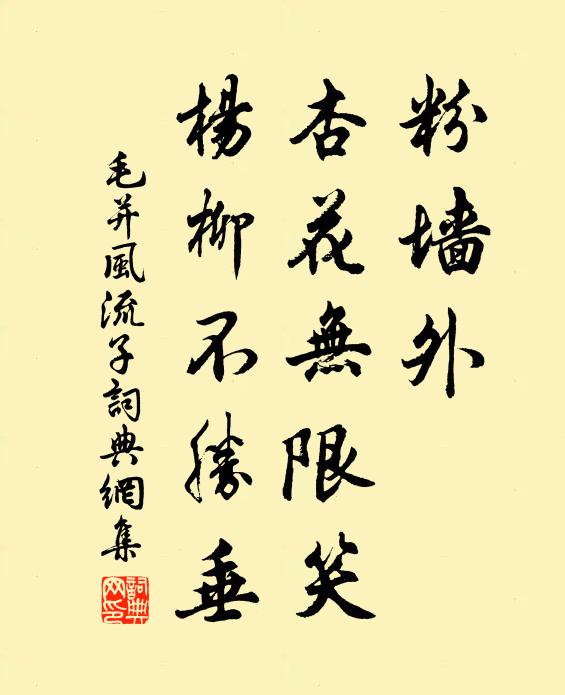 粉墙外
杏花無限笑
楊柳不勝垂
毛幵風流子詞典網集
詞典网印